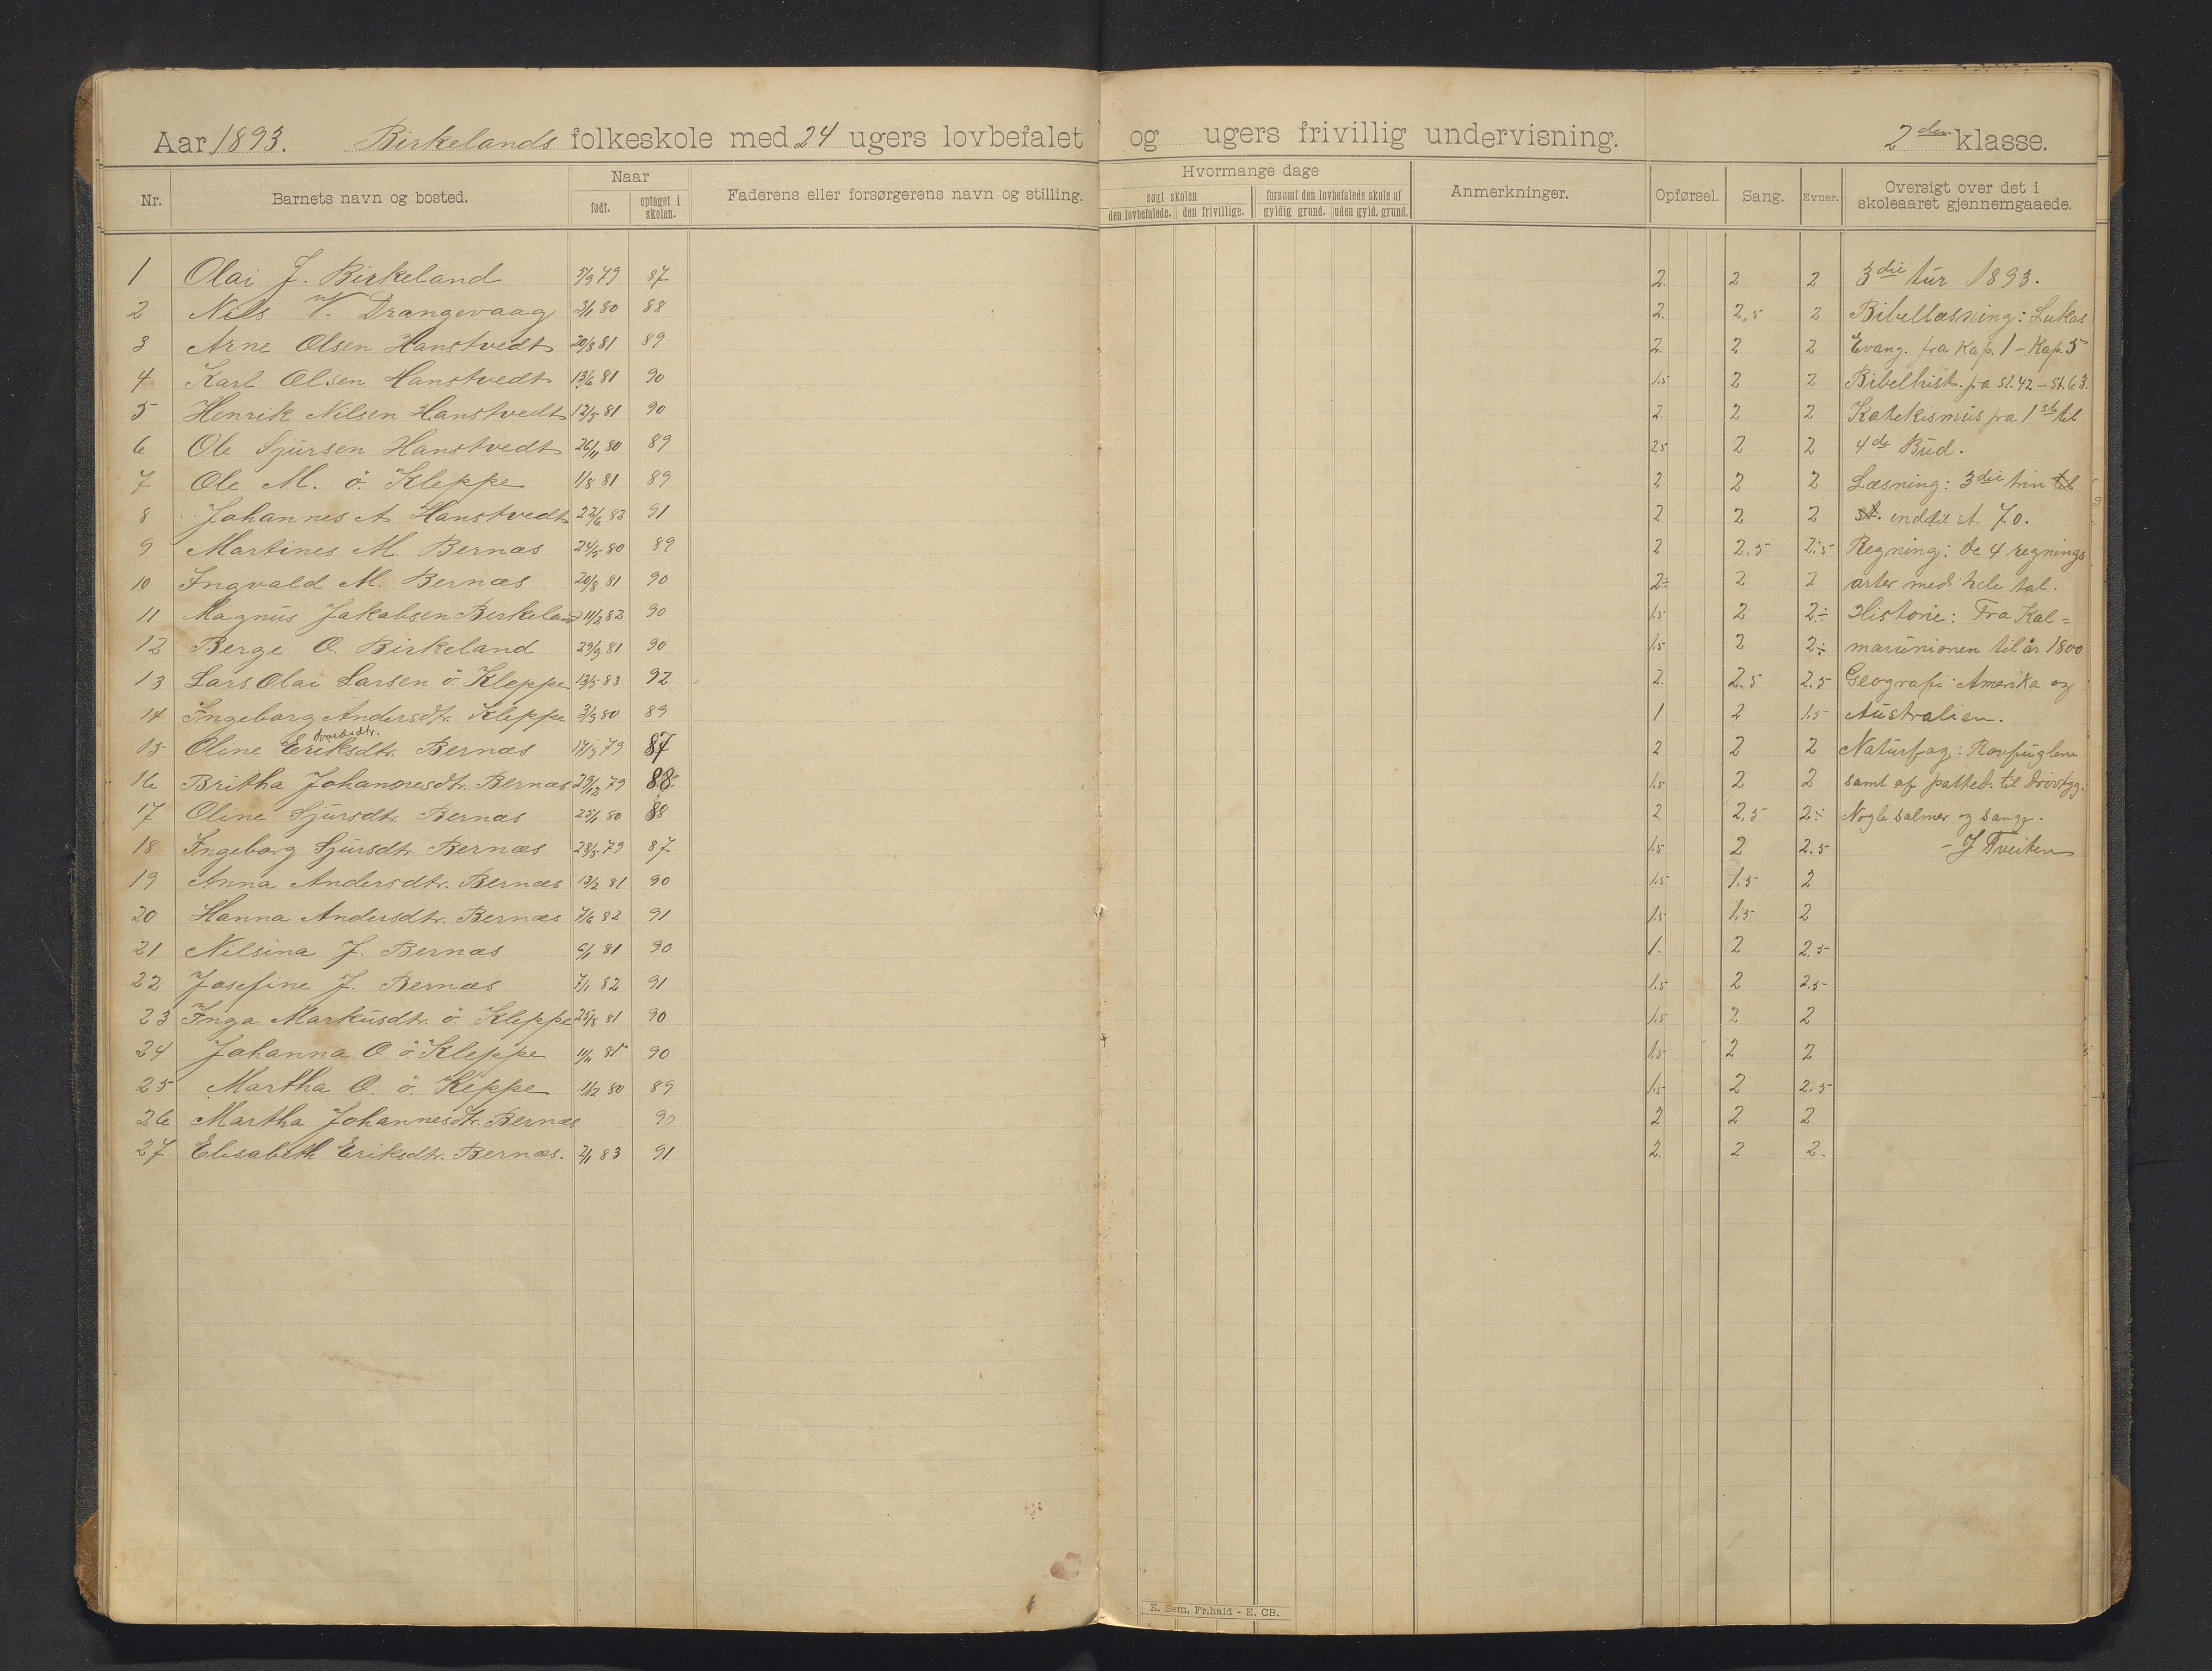 Aar 1893. Birkelands folkeskole med 24 ugers lovbefalet og ugers frivillig undervisning. 2den klasse.
Nr. Barnets navn og bosted. Naar født. optaget i skolen. Faderens eller forsørgerens navn og stilling. Hvormange dage søgt skolen den lovbefalede. den frivillige. forsømt den lovbefalede skole af gyldig grund. uden gyld. grund. Anmerkninger. Opførsel. Sang. Evner. Oversigt over det i skoleaaret gjennemgaaede.
1 Olai J. Birkeland 5/9 79 87 2. 2 2 3die tur 1893.
2 Nils N. Drangevaag 3/1 80 88 2. 2,5 2 Bibellæsning: Lukas
3 Arne Olsen Hanstvedt 20/8 81 89 2. 2 2 Evang. fra Kap. 1 - Kap. 5
4 Karl Olsen Hanstvedt 13/6 81 90 1.5 2 2 Bibelhist. fra st. 42 - st. 63.
5 Henrik Nilsen Hanstvedt 12/5 81 90 2. 2 2 Katekismus fra 1ste til
6 Ole Sjursen Hanstvedt 26/11 80 89 2.5 2 2 4de Bud.
7 Ole M. ö. Kleppe 1/8 81 89 2 2 2 Læsning: 3die trin til
8 Johannes A Hanstvedt 22/6 82 91 2 2 2 st. indtil st. 70.
9 Martines M. Bernæs 24/5 80 89 2 2.5 2.5 Regning: de 4 regnings
10 Ingvald M. Bernæs 20/8 81 90 2÷ 2 2 arter med hele tal.
11 Magnus Jakobsen Birkeland 11/2 82 90 1.5 2 2÷ Historie: Fra Kal=
12 Berge O. Birkeland 29/9 81 90 1.5 2 2÷ marunionen til år 1800
13 Lars Olai Larsen ö. Kleppe 13/5 83 92 2. 2.5 2.5 Geografi: Amerika og
14 Ingeborg Andersdtr. Kleppe 3/9 80 89 1 2 1.5 Australien.
15 Oline Eriksdtr. Bernæs 17/9 79 87 2 2 2 Naturfag: Rovfuglene
16 Britha Johannesdtr. Bernæs 29/12 79 88 1.5 2 2 samt af patted. til drövtyg.
17 Oline Sjursdtr. Bernæs 25/1 80 88 2 2.5 2÷ Nogle salmer og sange.
18 Ingeborg Sjursdtr. Bernæs 28/5 79 87 1.5 2 2.5 - J Tveiten
19 Anna Andersdtr. Bernæs 13/2 81 90 1.5 1.5 2
20 Hanna Andersdtr. Bernæs 7/6 82 91 1.5 1.5 2
21 Nilsina J. Bernæs 6/1 81 90 1. 2 2.5
22 Josefine J. Bernæs 7/1 82 91 1.5 2 2.5
23 Inga Markusdtr. ö. Kleppe 25/8 81 90 1.5 2 2
24 Johanna O. ö. Kleppe 11/11 81 90 1.5 2 2
25 Martha O. ö. Keppe 1/12 80 89 1.5 2 2.5
26 Martha Johannesdtr. Bernæs 90 2 2 2
27 Elisabeth Eriksdtr. Bernæs. 2/1 83 91 2. 2 2.
E. Sem, Fr.hald - E. CB.